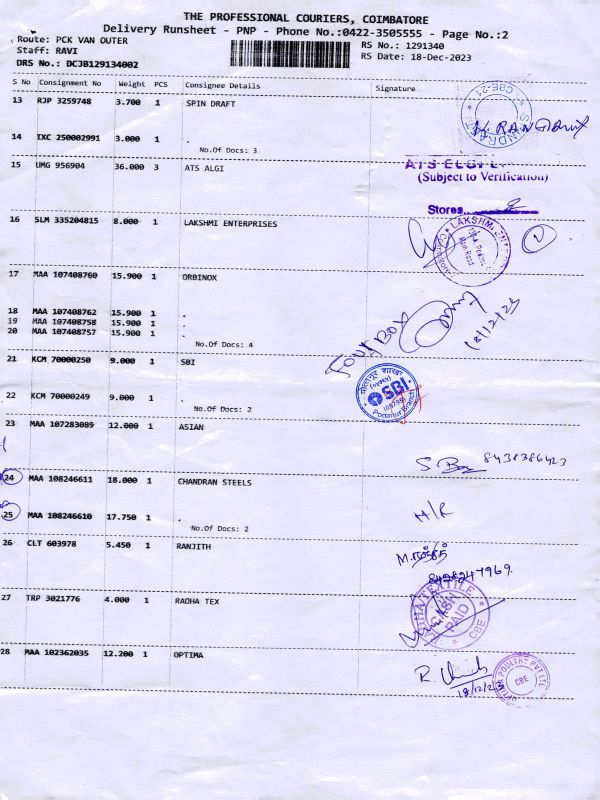 THE PROFESSIONAL COURIERS, COIMBATORE
Delivery Runsheet - PNP - Phone No.:0422-3505555 - Page No.:2
Route: PCK VAN OUTER
Staff: RAVI
DRS No.: DCJB129134002
RS No.: 1291340
RS Date: 18-Dec-2023
S No Consignment No Weight PCS Consignee Details Signature
13 RJP 3259748 3.700 1 SPIN DRAFT
CBE-21
14 IXC 250002991 3.000 1 .
No.Of Docs: 3
15 UMG 956904 36.000 3 ATS ALGI
ATS ELGI
(Subject to Verification)
Stores
16 SLM 335204815 8.000 1 LAKSHMI ENTERPRISES
17 MAA 107408760 15.900 1 ORBINOX
18 MAA 107408762 15.900 1 .
19 MAA 107408758 15.900 1 .
20 MAA 107408757 15.900 1 .
No.Of Docs: 4
FOUR BOX
18/12/23
21 KCM 70000250 9.000 1 SBI
SBI
Podanur Branch
22 KCM 70000249 9.000 1 .
No.Of Docs: 2
23 MAA 107283089 12.000 1 ASIAN
8438386423
24 MAA 108246611 18.000 1 CHANDRAN STEELS
25 MAA 108246610 17.750 1 .
No.Of Docs: 2
M/R
26 CLT 603978 5.450 1 RANJITH
8428247969.
27 TRP 3021776 4.000 1 RADHA TEX
RADHA TEXTILE
CASH PAID
CBE
28 MAA 102362035 12.200 1 OPTIMA
OPTIMA POULTRY PVT LTD
CBE